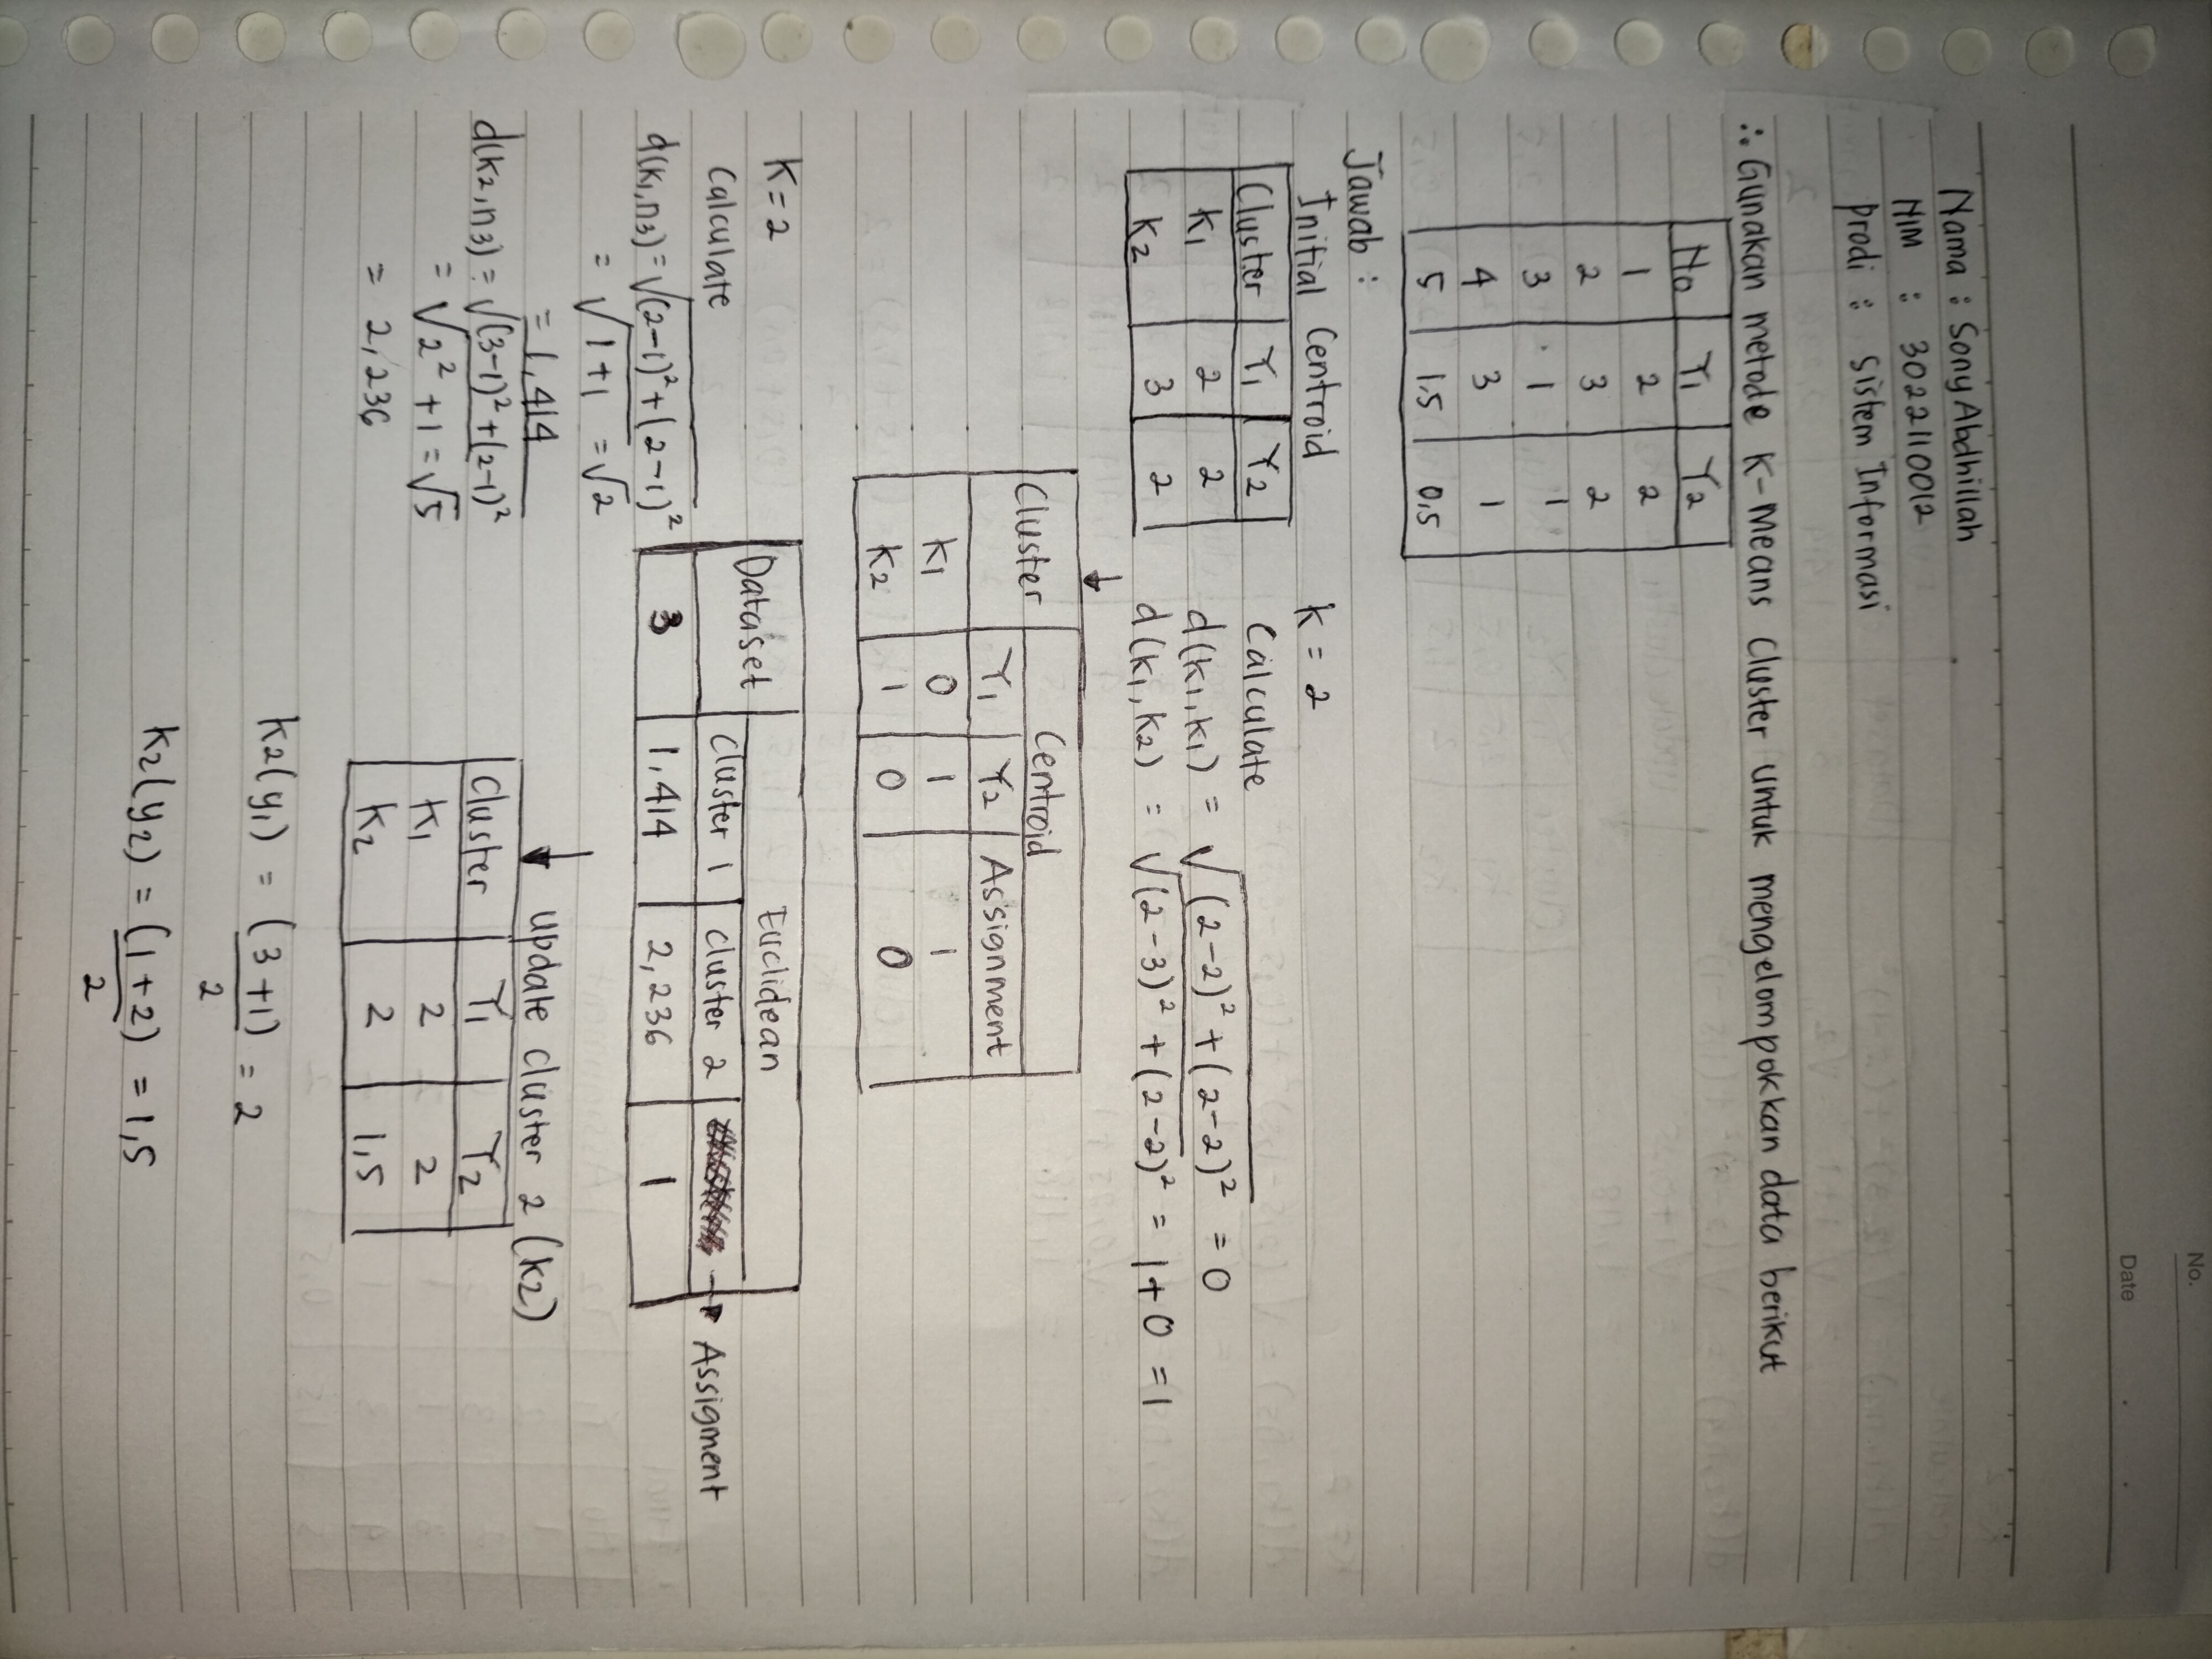 No.
Date
Nama : Sony Abdhillah
NIM : 3022110012
Prodi : Sistem Informasi
∴ Gunakan metode K-Means Cluster untuk mengelompokkan data berikut
No Y1 Y2
1 2 2
2 3 2
3 1 1
4 3 1
5 1.5 0,5
Jawab :
Initial Centroid
Cluster Y1 Y2
K1 2 2
K2 3 2
K = 2
Calculate
d(K1,K1) = √(2-2)² + (2-2)² = 0
d(K1,K2) = √(2-3)² + (2-2)² = 1+0 = 1
↓
Cluster Centroid
Y1 Y2 Assignment
K1 0 1 1
K2 1 0 0
K=2
Calculate
d(K1,n3) = √(2-1)² + (2-1)²
= √1+1 = √2
= 1,414
d(K2,n3) = √(3-1)² + (2-1)²
= √2² + 1 = √5
= 2,236
Dataset Euclidean
Cluster 1 Cluster 2 → Assigment
3 1,414 2,236 1
↓ update cluster 2 (K2)
Cluster Y1 Y2
K1 2 2
K2 2 1,5
K2(y1) = (3+1)/2 = 2
K2(y2) = (1+2)/2 = 1,5